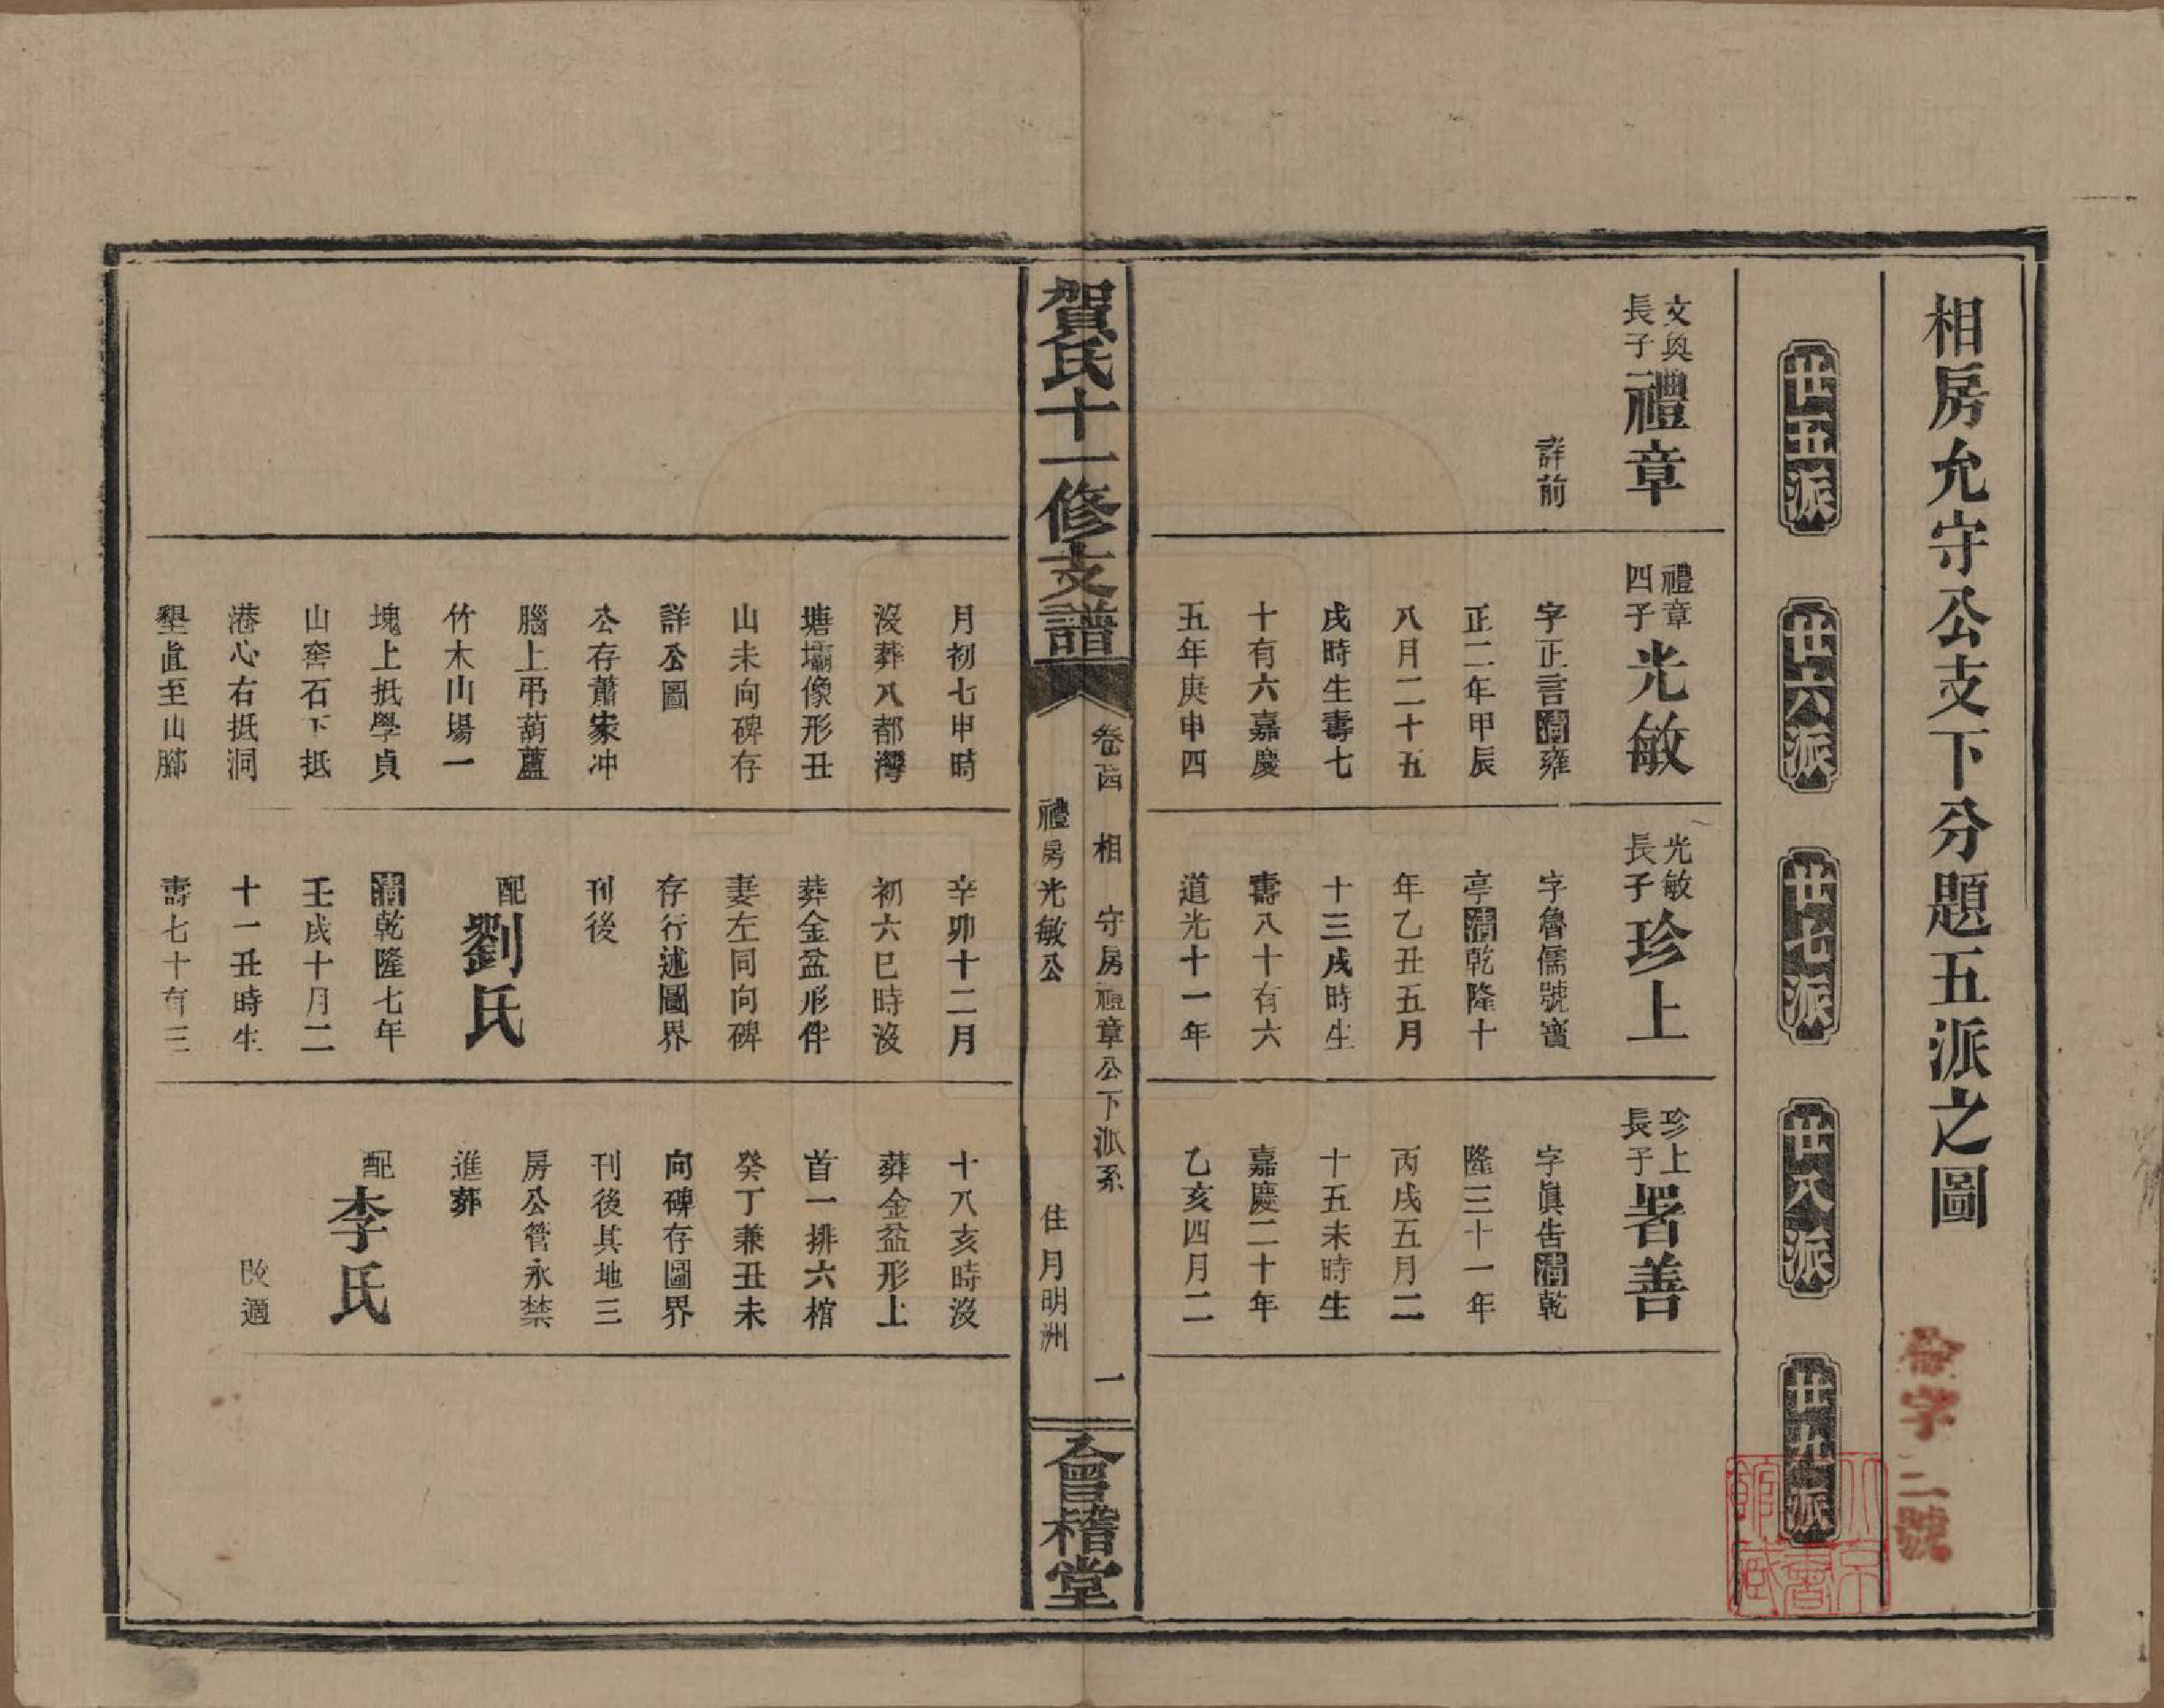 相房允守公支下分題五派之圖
世五派
世六派
世七派
世八派
世九派
文奐
長子
禮章
詳前
禮章
四子
光敏
字正言清雍
正二年甲辰
八月二十五
戌時生壽七
十有六嘉慶
五年庚申四
光敏
長子
珍上
字魯儒號寶
亭清乾隆十
年乙丑五月
十三戌時生
壽八十有六
道光十一年
珍上
長子
署善
字眞吿清乾
隆三十一年
丙戌五月二
十五未時生
嘉慶二十年
乙亥四月二
賀氏十一修支譜
卷四 相 守房禮章公下派系 一
禮房光敏公 住月明洲
會稽堂
月初七申時
沒葬八都灣
塘壩像形丑
山未向碑存
詳公圖
公存蕭家冲
腦上弔葫蘆
竹木山場一
塊上抵學貞
山窖石下抵
港心右抵洞
壟直至山腳
辛卯十二月
初六巳時沒
葬金盆形伴
妻左同向碑
存行述圖界
刊後
配劉氏
清乾隆七年
壬戌十月二
十一丑時生
壽七十有三
十八亥時沒
葬金盆形上
首一排六棺
癸丁兼丑未
向碑存圖界
刊後其地三
房公管永禁
進葬
配李氏
改適
字二號
北京
圖書
館藏